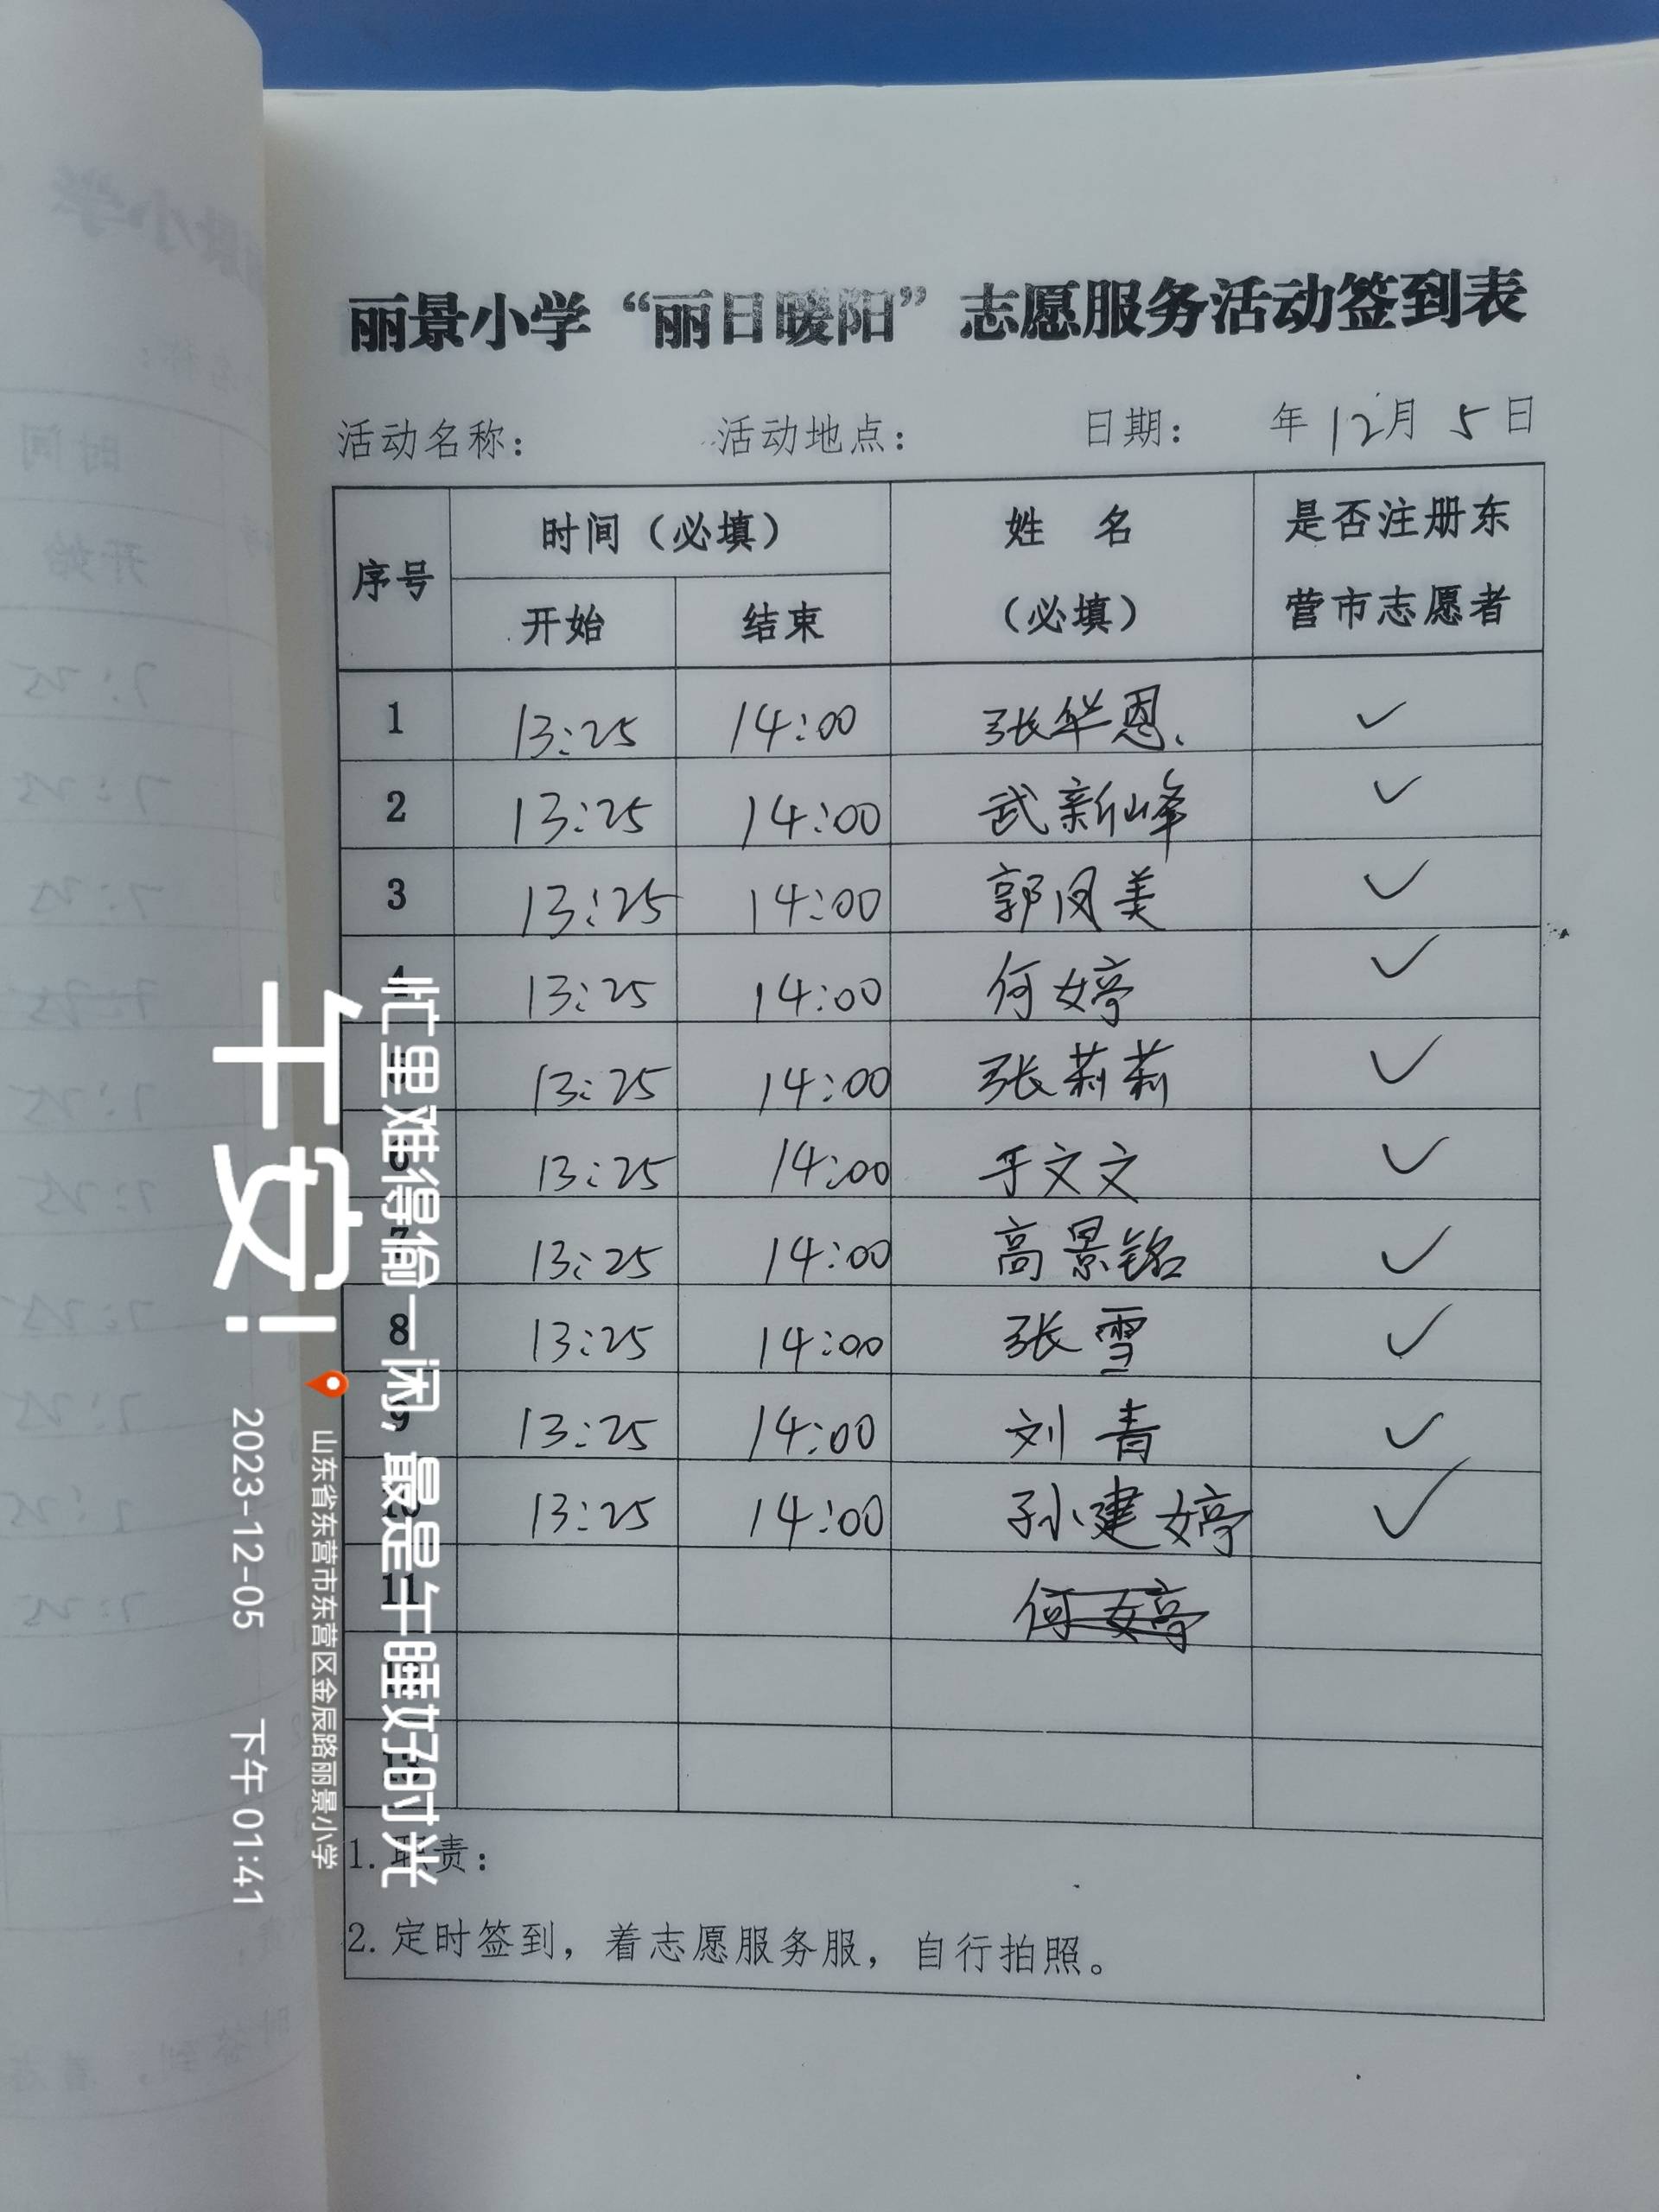 丽景小学“丽日暖阳”志愿服务活动签到表
活动名称： 活动地点： 日期： 年12月5日
序号 时间（必填） 姓 名（必填） 是否注册东营市志愿者
开始 结束
1 13:25 14:00 张华恩 ✓
2 13:25 14:00 武新峰 ✓
3 13:25 14:00 郭凤美 ✓
4 13:25 14:00 何婷 ✓
5 13:25 14:00 张莉莉 ✓
6 13:25 14:00 于文文 ✓
7 13:25 14:00 高景铭 ✓
8 13:25 14:00 张雪 ✓
9 13:25 14:00 刘青 ✓
10 13:25 14:00 孙建婷 ✓
11 何婷
12
13
1.职责：
2.定时签到，着志愿服务服，自行拍照。
忙里难得偷一闲，最是午睡好时光
午安！
山东省东营市东营区金辰路丽景小学
2023-12-05 下午01:41